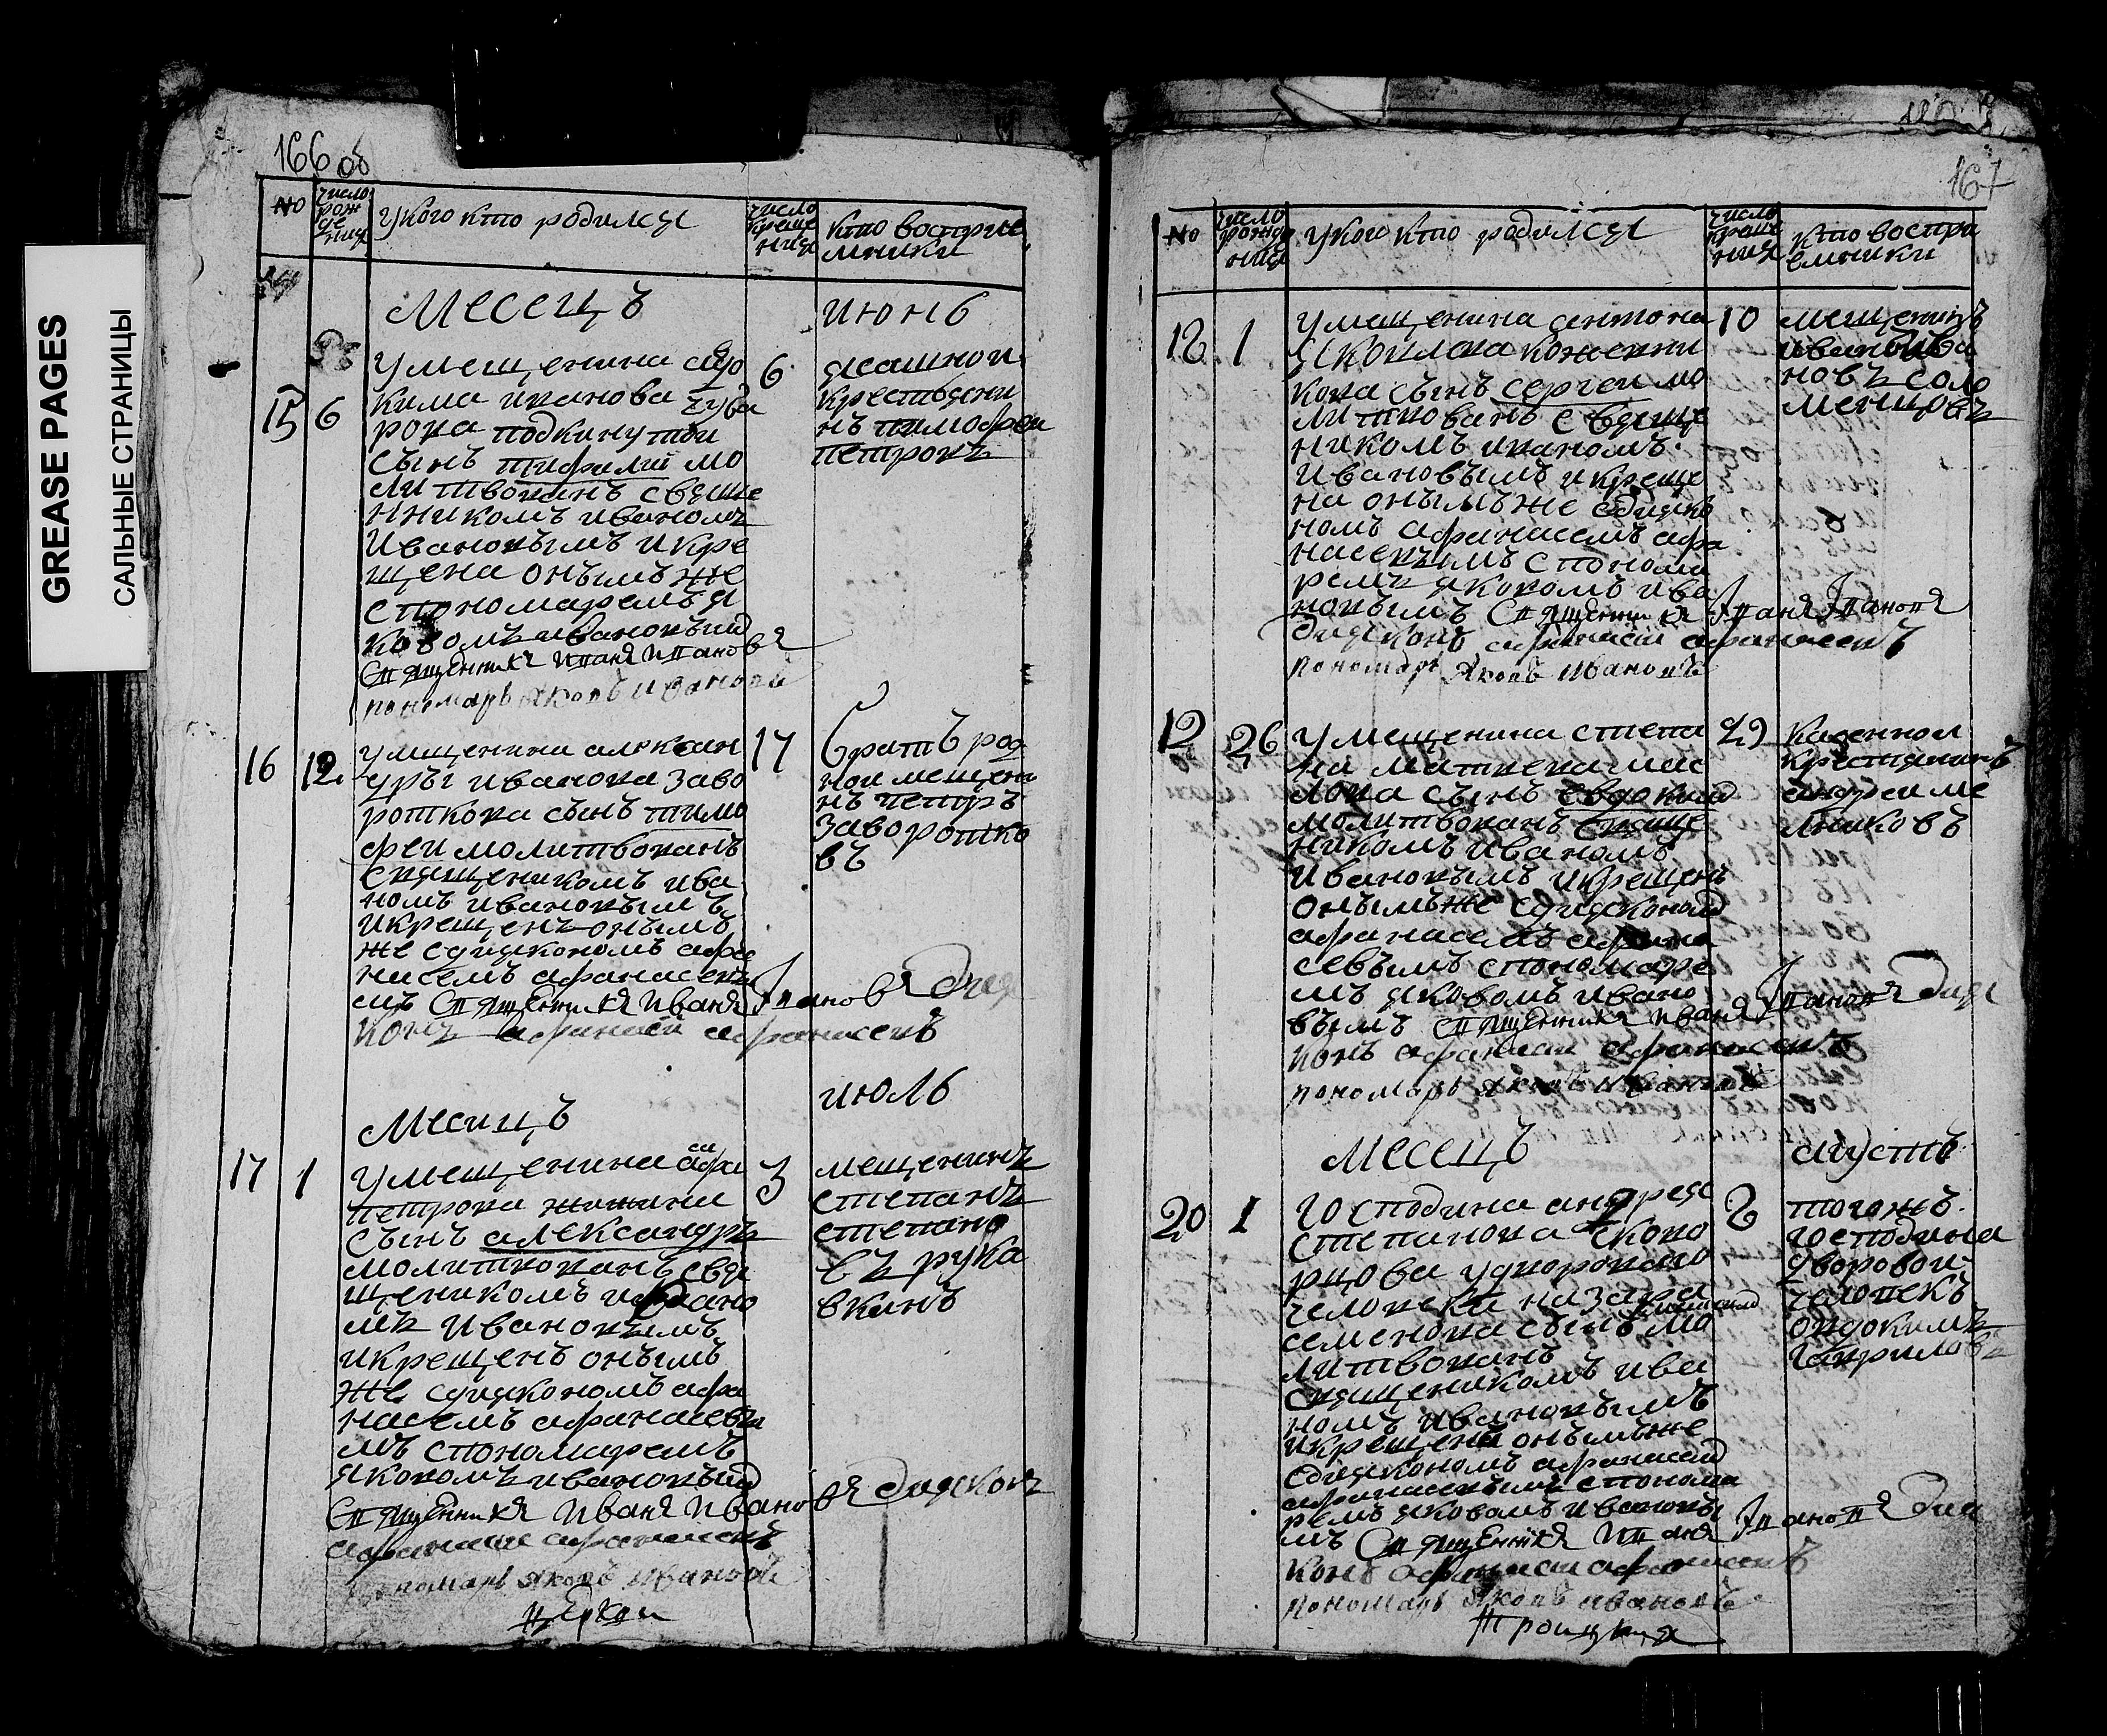 GREASE PAGES
САЛЬНЫЕ СТРАНИЦЫ
166 об
№
число
рож
де
ния
у кого кто родился
число
креще
ния
кто восприе
мники
Месецъ
июнь
15
6
у мещенина
кима иванова
рова подкинутои
сынъ тифилий мо
литвованъ свяще
нникомъ иваномъ
ивановымъ и кре
щена онымъ же
с пономаремъ я
ковомъ ивановым
Священникъ Иванъ Ивановъ
пономарь Яковъ Ивановъ
6
ясашнои
крестьяни
нъ тимофеи
петровъ
16
12
у мищенина алексан
дры иванова заво
роткова сынъ тимо
феи молитвованъ
священикомъ ива
номъ ивановымъ
и крещенъ онымъ
же с дияконом афа
насемъ афанасевы
мъ Священникъ Иванъ Ивановъ дия
конъ афанасей афанасевъ
17
братъ род
нои мещени
нъ петръ
заворотко
въ
Месицъ
июль
17
1
у мещенина
петрова
сынъ александръ
молитвованъ свя
щеникомъ ивано
мъ ивановымъ
и крещенъ онымъ
же с дияконом афа
насемъ афанасевы
мъ с пономаремъ
яковомъ ивановым
Священникъ Иванъ Ивановъ дияконъ
афанасеи афанасевъ
пономарь Яковъ Ивановъ
церкви
3
мещенинъ
степанъ
степано
въ рука
вкинъ
167
№
число
рожде
ния
у кого кто родился
число
креще
ния
кто воспри
емники
18
1
у мещенина антона
яковлева кожевни
кова сынъ сергеи мо
литвованъ свяще
никомъ иваномъ
ивановымъ и креще
на онымъ же с дияко
номъ афанасемъ афа
насевымъ с понома
ремъ яковомъ ива
новымъ Священникъ Иванъ Ивановъ
дияконъ афанасеи афанасевъ
пономарь Яковъ Ивановъ
10
мещенинъ
новъ соло
менцовъ
19
26
у мещенина степа
на матвева мас
лова сынъ евдоким
молитвованъ свяще
никомъ иваномъ
ивановымъ и крещенъ
онымъ же с дияконом
афанасемъ афана
севымъ с пономаре
мъ яковомъ ивано
вымъ Священникъ Иванъ Ивановъ дия
конъ афанасеи афанасевъ
пономарь Яковъ Ивановъ
29
казеннои
крестянинъ
андреи ме
лниковъ
Месецъ
августъ
20
1
господина андрея
степанова скоко
рцова у двороваго
человека назара
семенова сынъ мо
литвованъ
священикомъ ива
номъ ивановымъ
и крещена онымъ же
с дияконом афанасем
афанасевымъ с понома
ремъ яковомъ ивановы
мъ Священникъ Иванъ Ивановъ дия
конъ афанасеи афанасевъ
пономарь Яковъ Ивановъ
Троицкия
2
тогожъ
господина
дворовои
человекъ
овдокимъ
гавриловъ